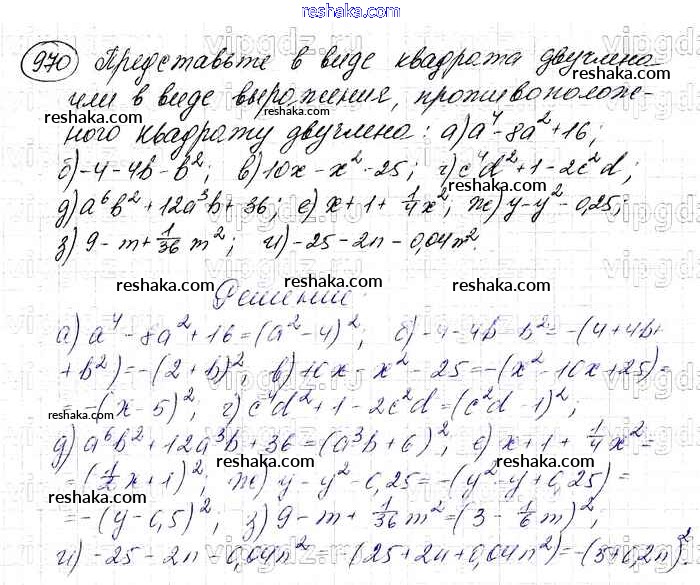 reshaka.com
970 Представьте в виде квадрата двучлена
или в виде выражения, противополож-
ного квадрату двучлена: а) a⁴-8a²+16;
б) -4-4b-b²; в) 10x-x²-25; г) c⁴d²+1-2c²d;
д) a⁶b²+12a³b+36; е) x+1+1/4x²; ж) y-y²-0,25;
з) 9-m+1/36 m²; и) -25-2n-0,04n².
reshaka.com reshaka.com reshaka.com
Решение:
а) a⁴-8a²+16=(a²-4)²; б) -4-4b-b²=-(4+4b+
+b²)=-(2+b)² в) 10x-x²-25=-(x²-10x+25)=
=-(x-5)²; г) c⁴d²+1-2c²d=(c²d-1)²;
д) a⁶b²+12a³b+36=(a³b+6)²; е) x+1+1/4x²=
=(1/2x+1)²; ж) y-y²-0,25=-(y²-y+0,25)=
=-(y-0,5)²; з) 9-m+1/36m²=(3-1/6m)²;
и) -25-2n-0,04n²=-(25+2n+0,04n²)=-(5+0,2n)².